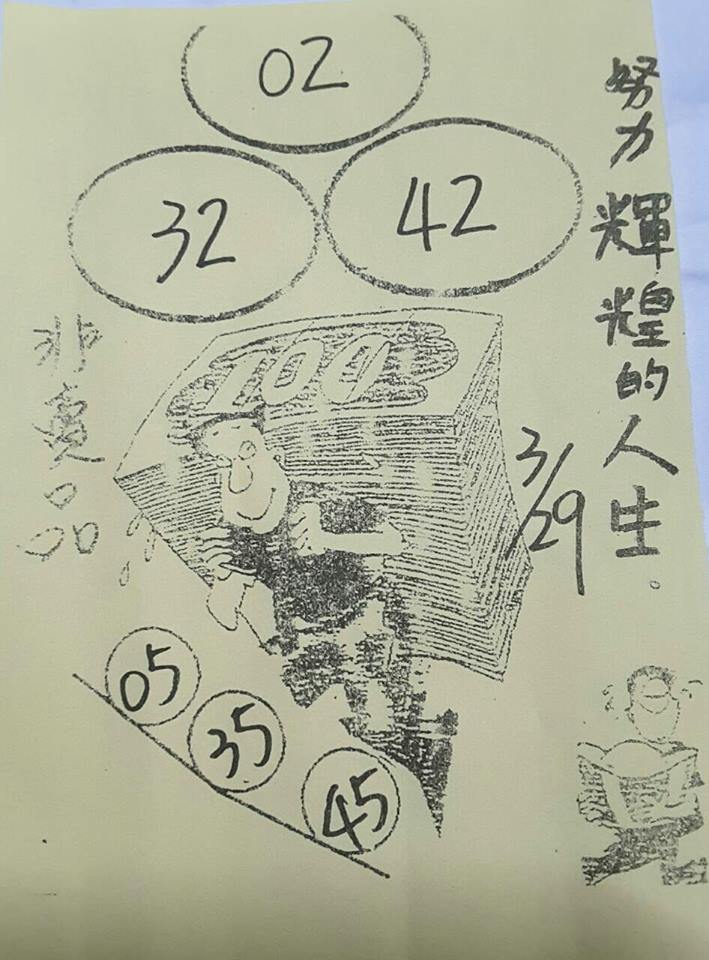 02
32
42
努力輝煌的人生。
100
非賣品
3/29
05
35
45